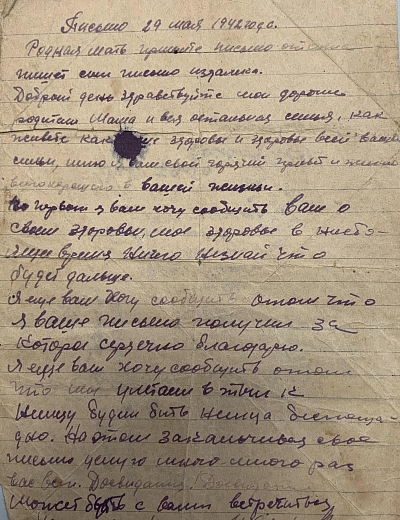 Письмо 29 мая 1942 года.
Родная мать примите письмо от сына
пишет сын письмо издалека.
Добрый день здравствуйте мои дорогие
родители Маша и вся остальная семья, как
живете как здоровье и здоровье всей вашей
семьи, шлю я вам свой горячий привет и
в вашей жизньи.
Во первых я вам хочу сообщить вам о
своем здоровьи, мое здоровье в насто-
ящее время ничего незнай что
будет дальше.
Я еще вам хочу сообщить отом что
я ваше письмо получил за
которое сердечно благодарю.
Я еще вам хочу сообщить отом
что мы в тыл к
Немцу будим бить немца беспоща-
дно. На этом заканчиваю свое
письмо целую много много раз
вас всех. Досвидания.
Может быть с вами встретиться